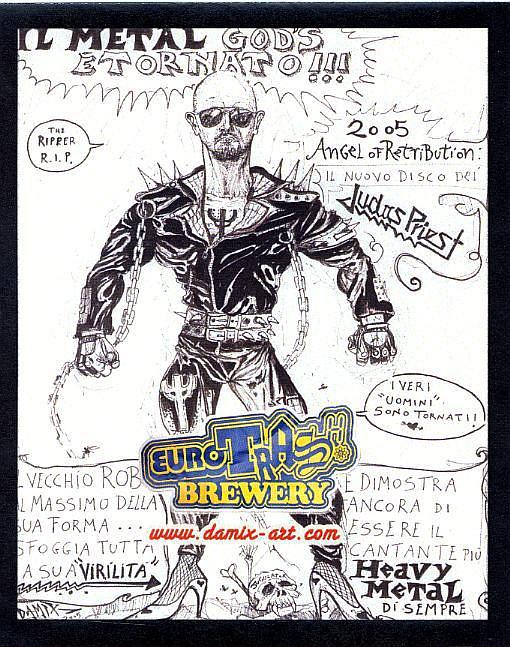 IL METAL GODS
È TORNATO!!!...
THE
RIPPER
R.I.P.
2005
Angel of Retribution:
IL NUOVO DISCO DEI
Judas Priest
I VERI
"UOMINI"
SONO TORNATI!
EURO TRASH
BREWERY
www.damix-art.com
L VECCHIO ROB
AL MASSIMO DELLA
SUA FORMA ...
SFOGGIA TUTTA
LA SUA "VIRILITÀ"
DAMIX 2005
E DIMOSTRA
ANCORA DI
ESSERE IL
CANTANTE PIÙ
Heavy
METAL
DI SEMPRE